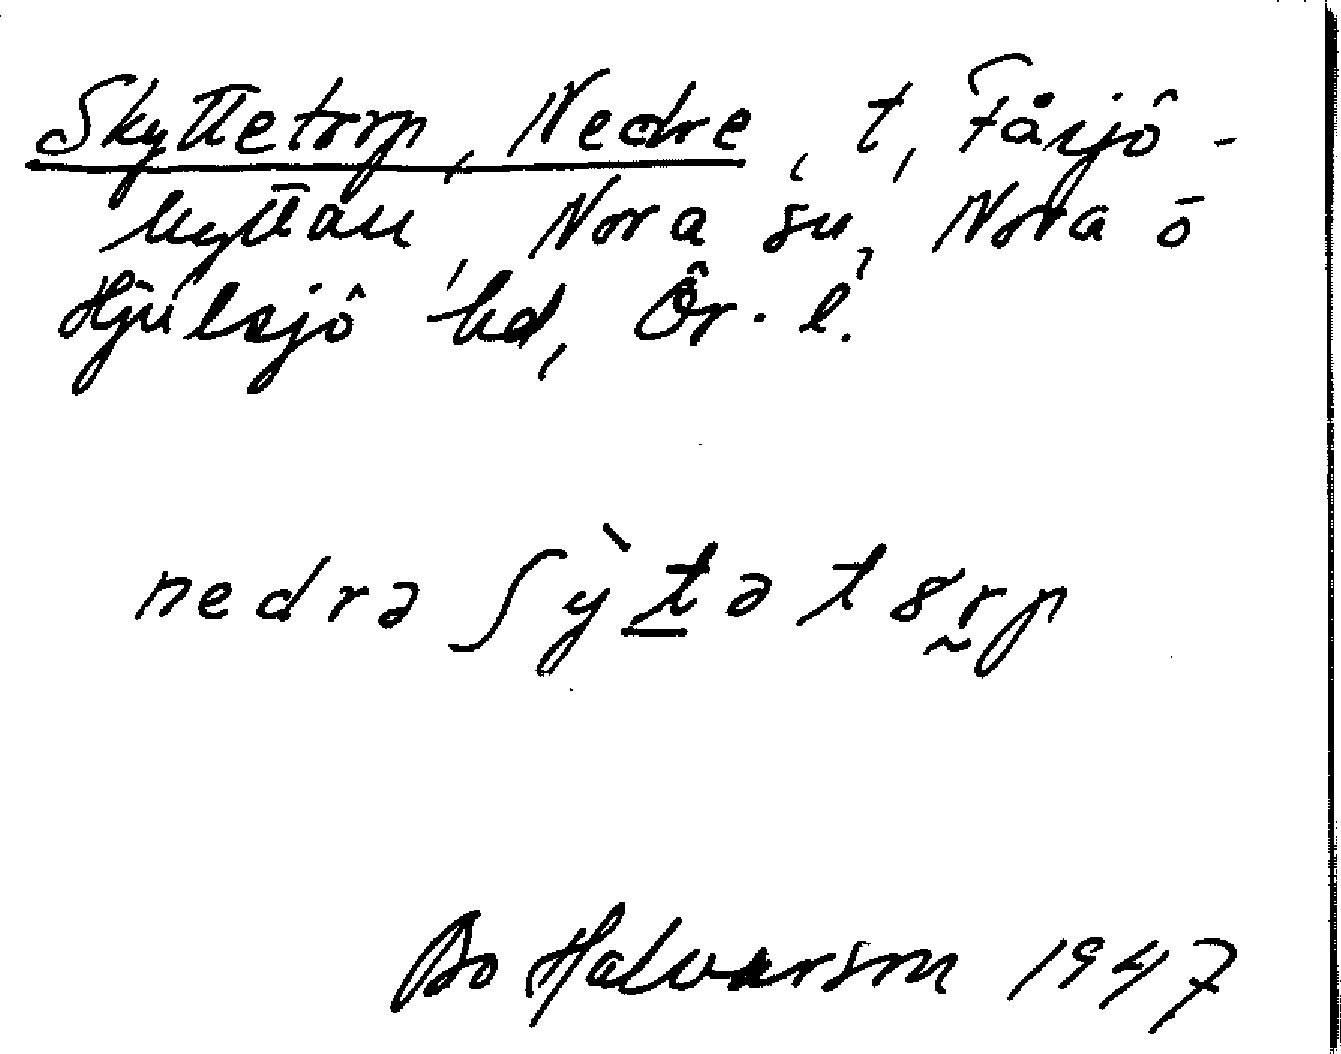 Skyttetorp, Nedre, t, Fåsjö-
hyttan, Nora sn, Nora o
Hjulsjö hd, Ör. l.
nedrə ʃỳtətərp
Bo Halvarson 1947